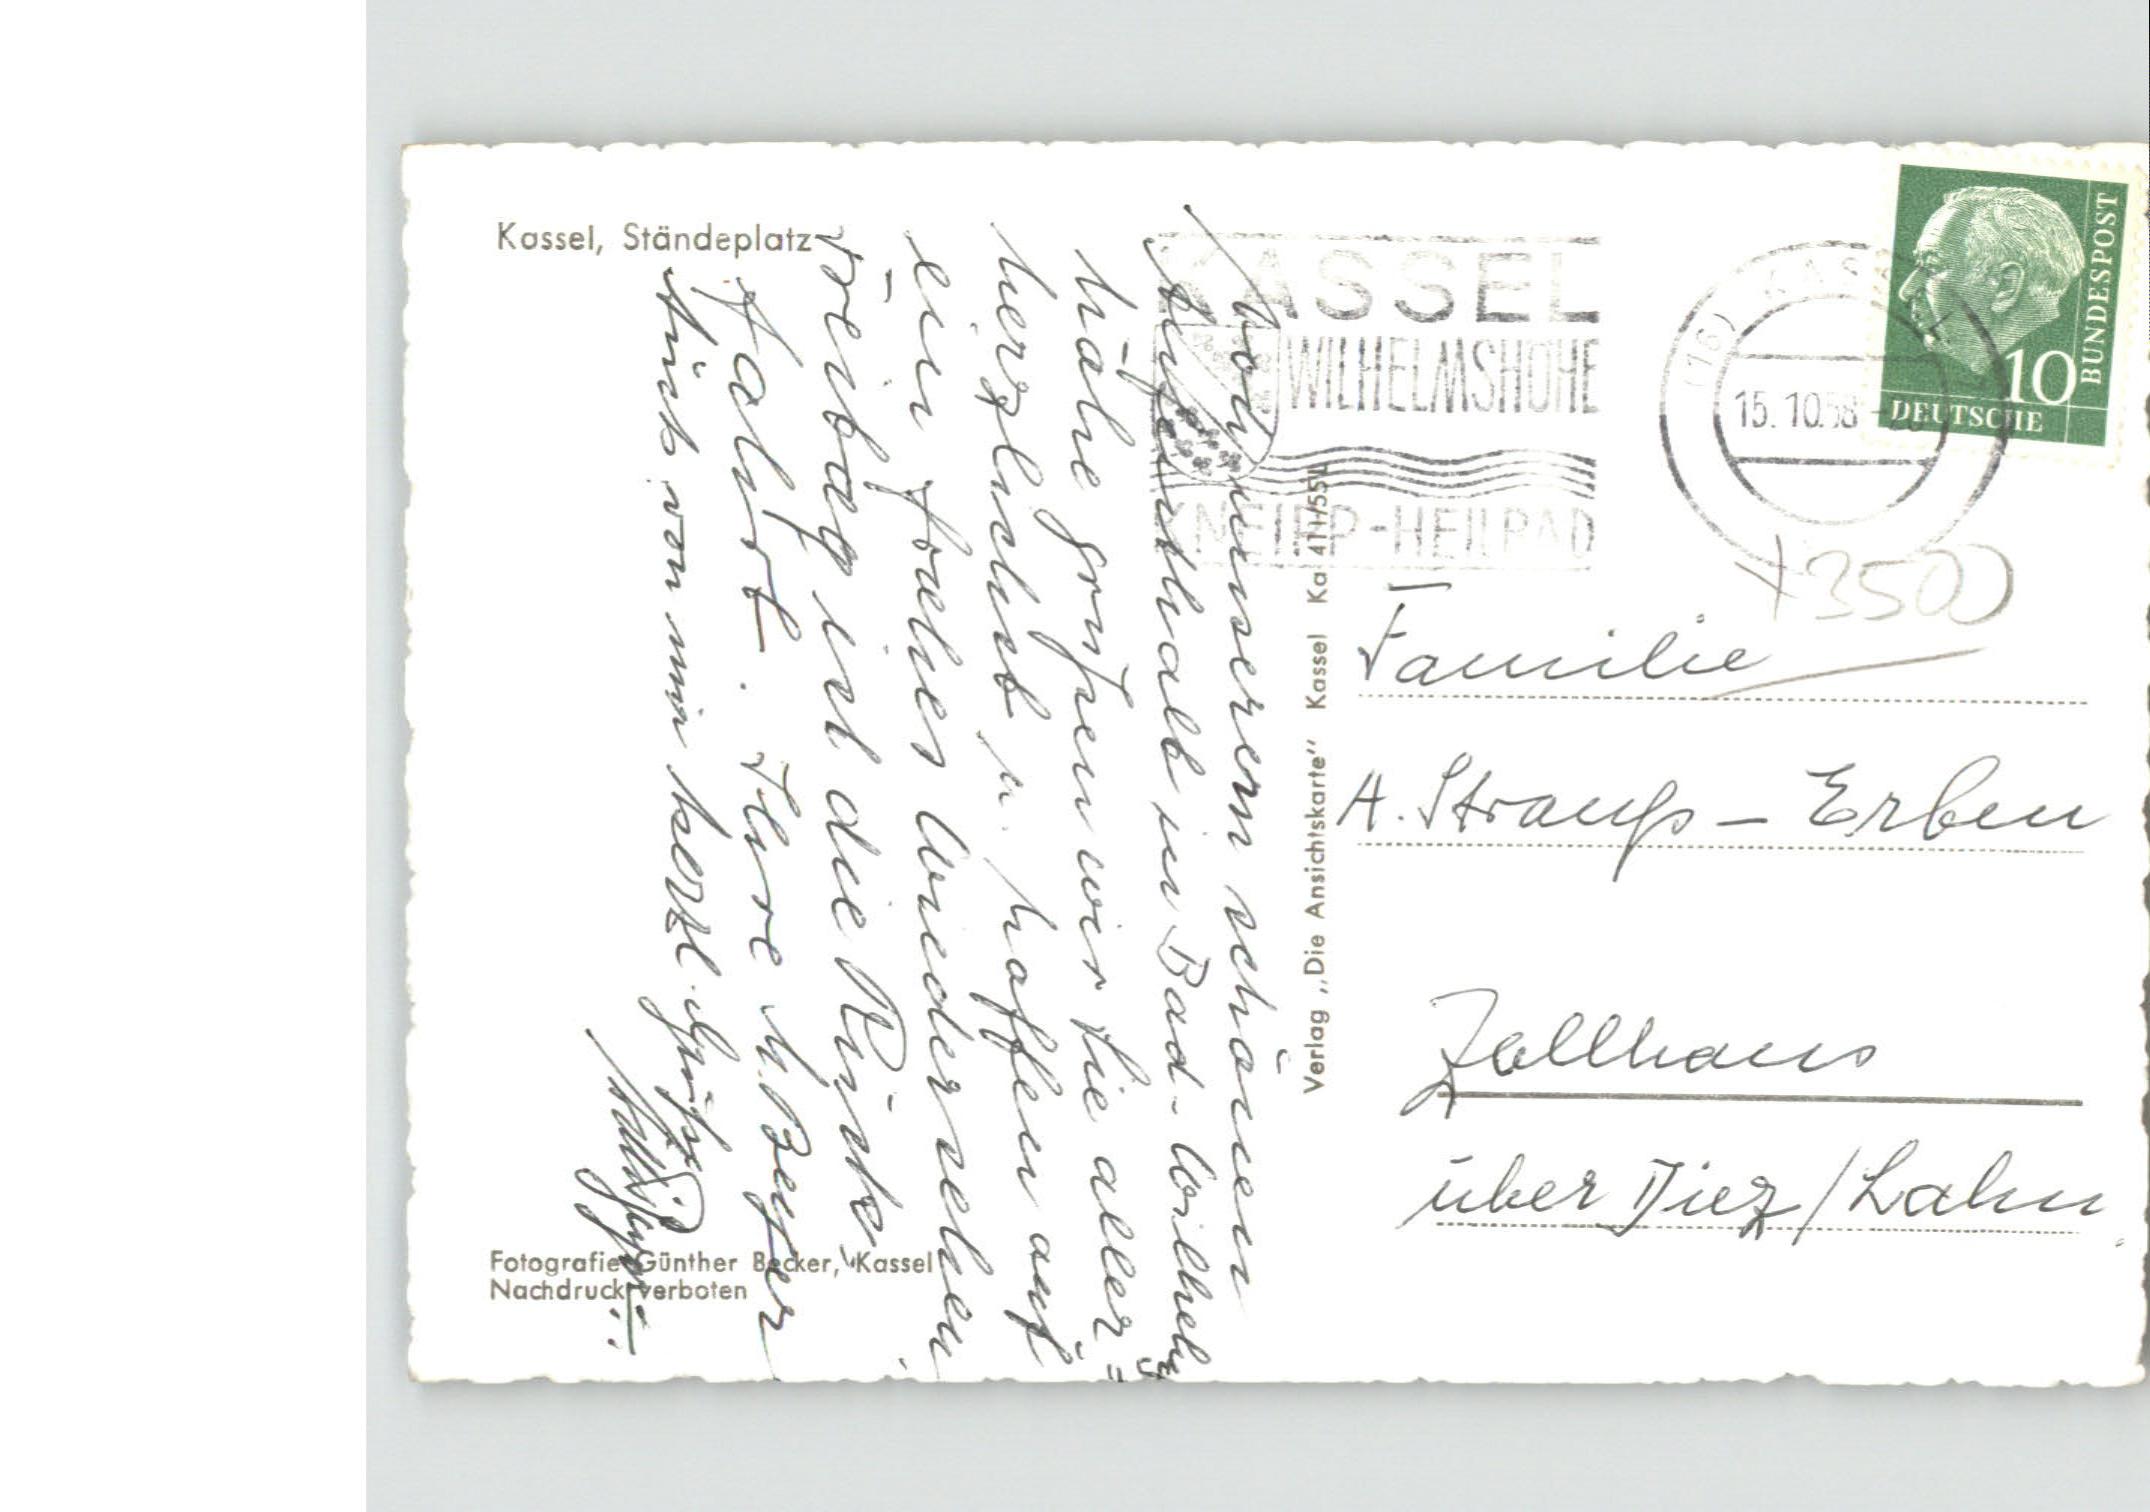 Kassel, Ständeplatz
Von unserem schönen
Aufenthalt in Bad-Wilhelms
höhe grüßen wir Sie aller=
herzlichst u. hoffen auf
ein frohes Wiedersehen.
Freitag ist die Rück-
fahrt. Ihre M.
Auch von mir herzl. Grüße
Fotografie Günther Becker, Kassel
Nachdruck verboten
Verlag „Die Ansichtskarte" Kassel Ka 411/55
KASSEL
WILHELMSHÖHE
KNEIPP-HEILBAD
(16) KASSEL
15.10.58
DEUTSCHE
BUNDESPOST
10
+3500
Familie
A. Strauß - Erben
Zollhaus
über Diez/Lahn